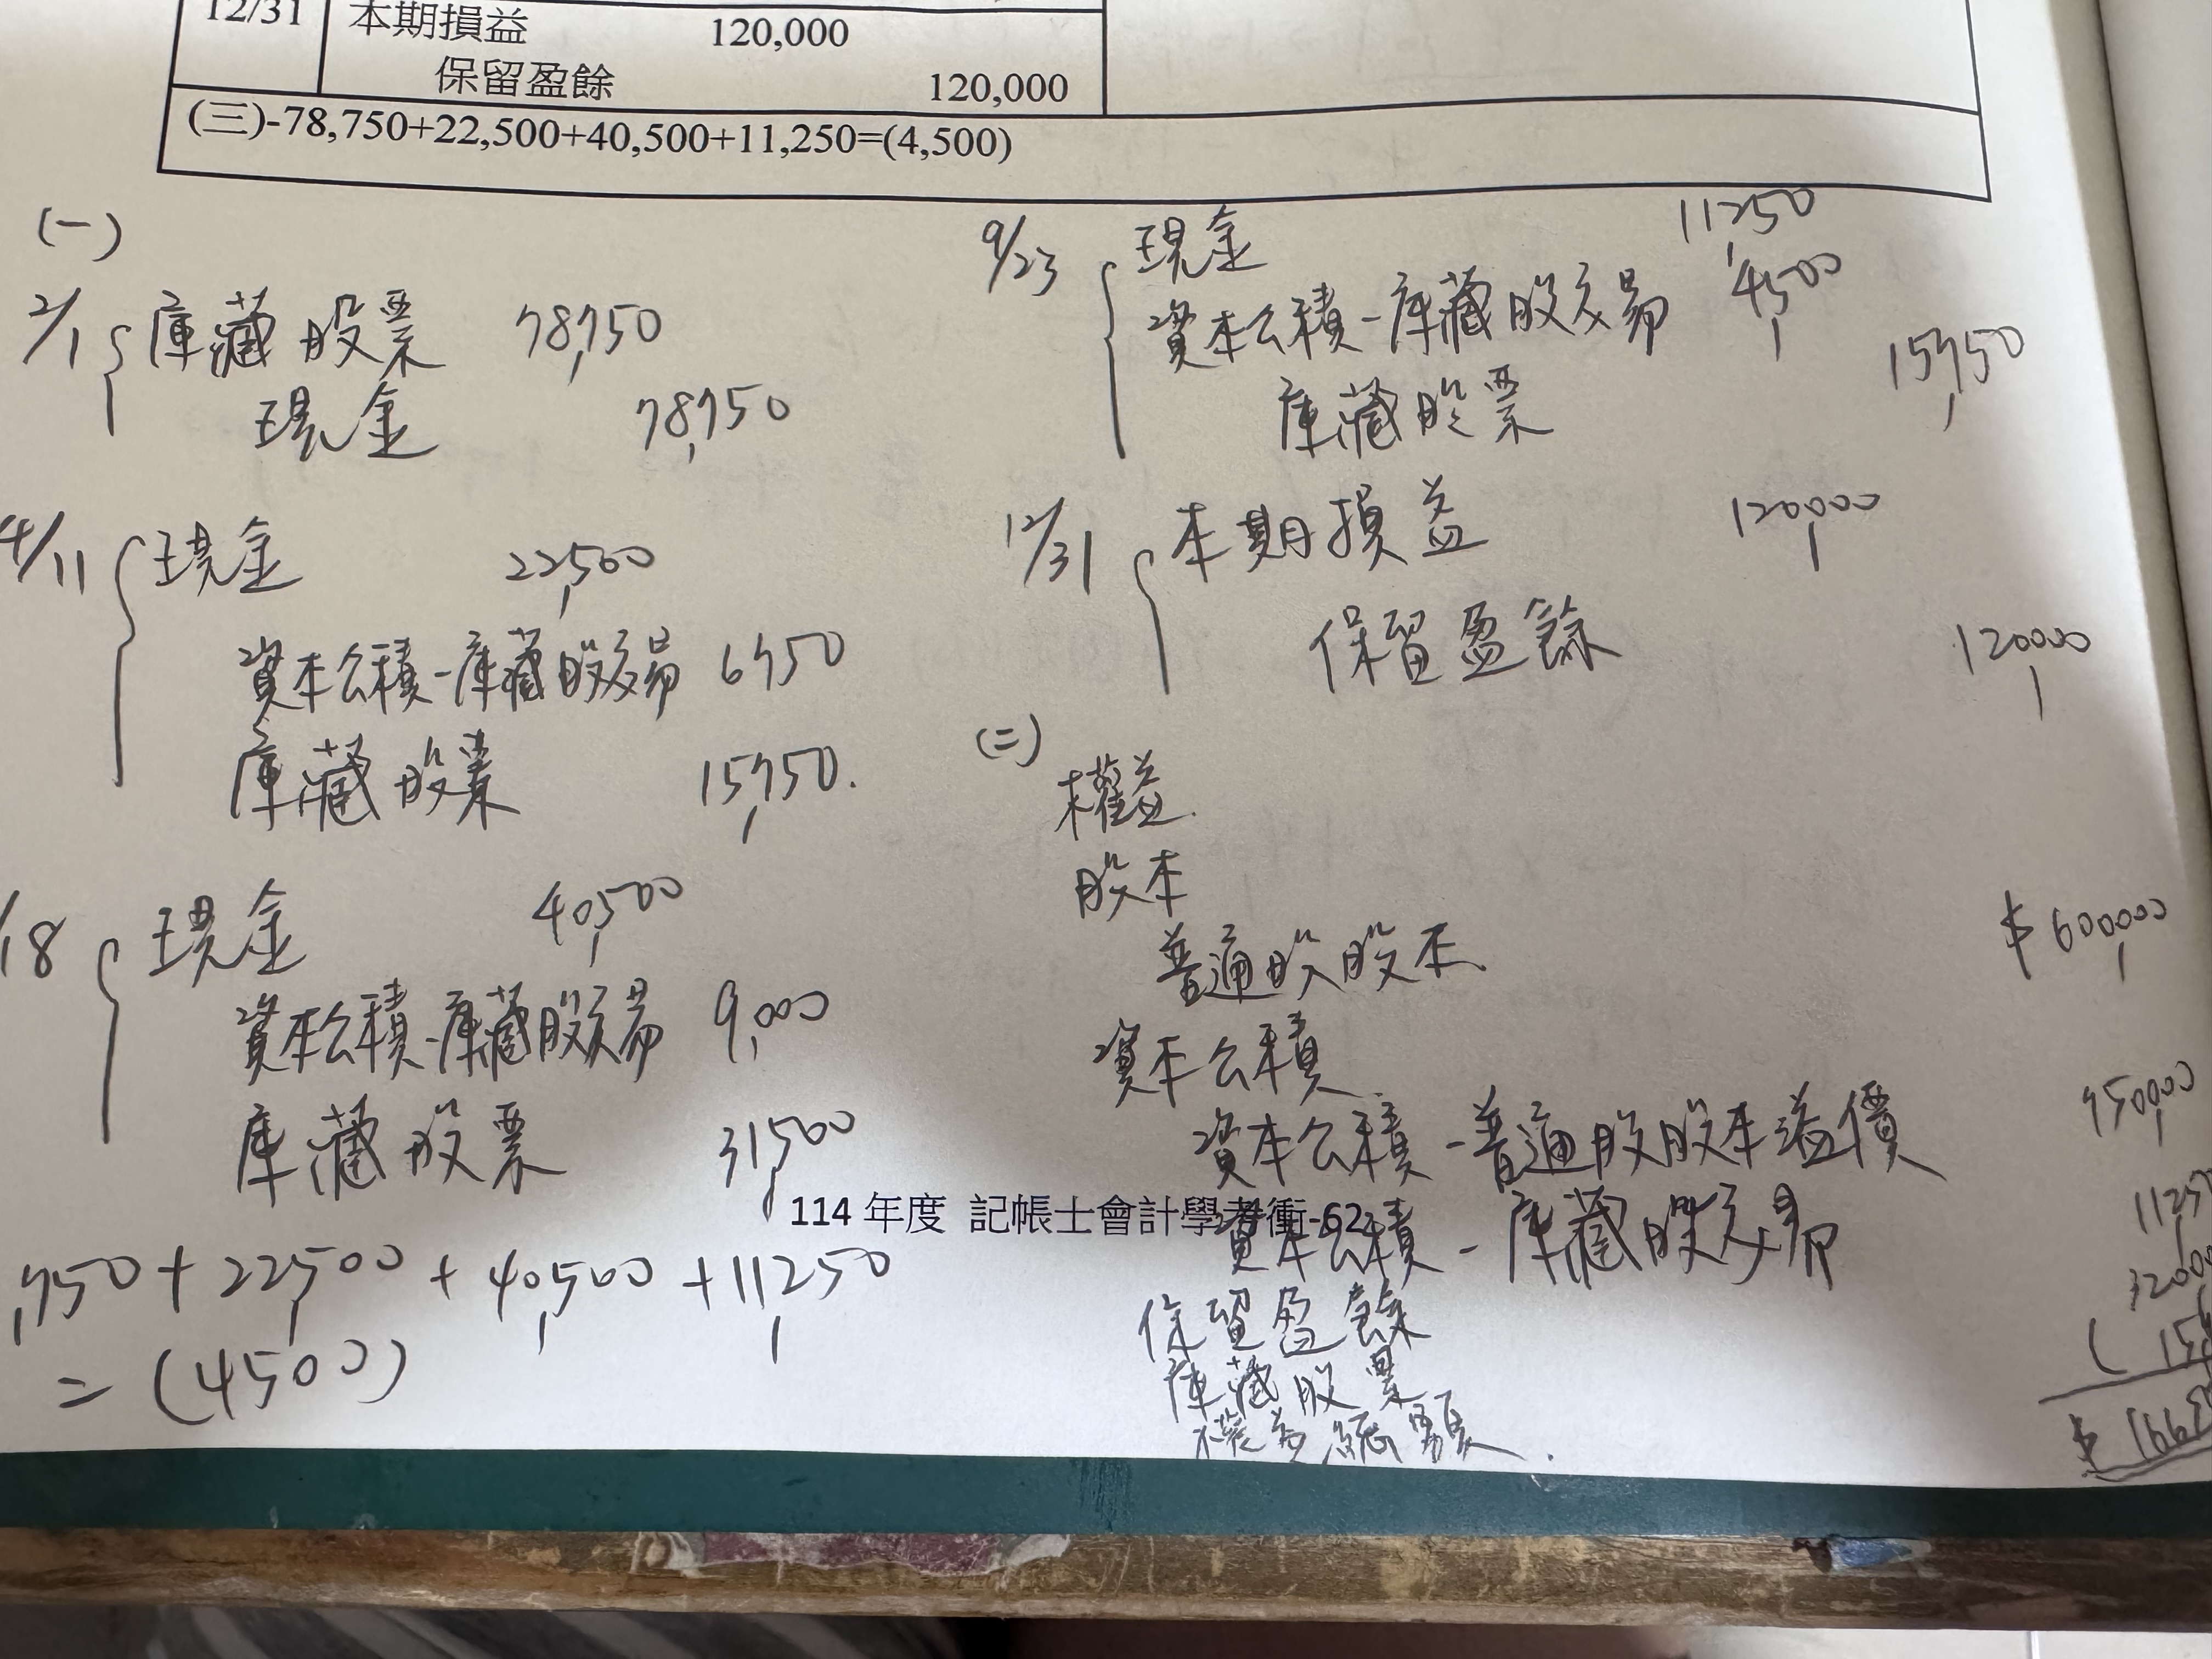 12/31 本期損益 120,000
保留盈餘 120,000
(三)-78,750+22,500+40,500+11,250=(4,500)
(一)
2/1 庫藏股票 78,750
現金 78,750
4/11 現金 22,500
資本公積-庫藏股交易 6750
庫藏股票 15,750.
/18 現金 40,500
資本公積-庫藏股交易 9,000
庫藏股票 31,500
,750+22,500+40,500+11,250
=(4500)
9/23 現金 11,250
資本公積-庫藏股交易 4,500
庫藏股票 15,750
12/31 本期損益 120,000
保留盈餘 120,000
(二)
權益.
股本
普通股股本. $600,000
資本公積.
資本公積-普通股股本溢價 750,000
資本公積-庫藏股交易 11,25
保留盈餘 3200
庫藏股票 (15,
權益總額. $166
114 年度 記帳士會計學考衝-62